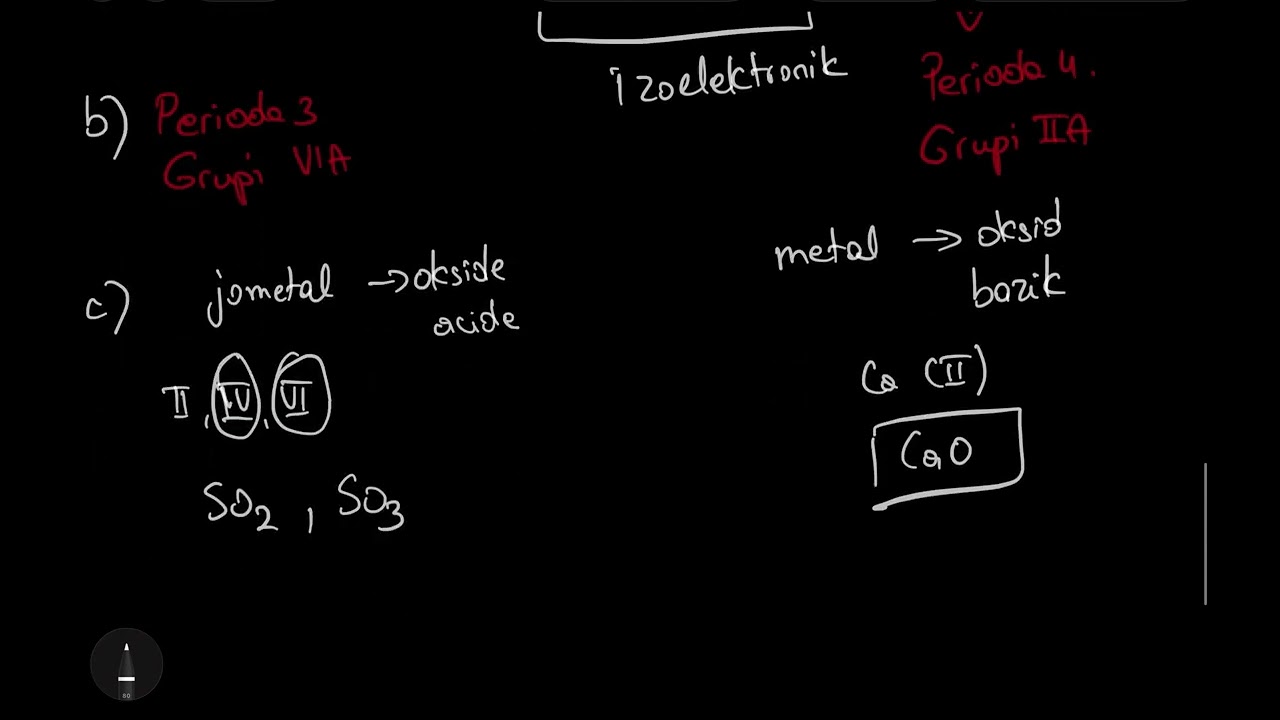 izoelektronik
Perioda 4.
Grupi IIA
b) Perioda 3
Grupi VIA
c) jometal → okside
acide
metal → oksid
bazik
II, IV, VI
SO2, SO3
Ca (II)
CaO
80